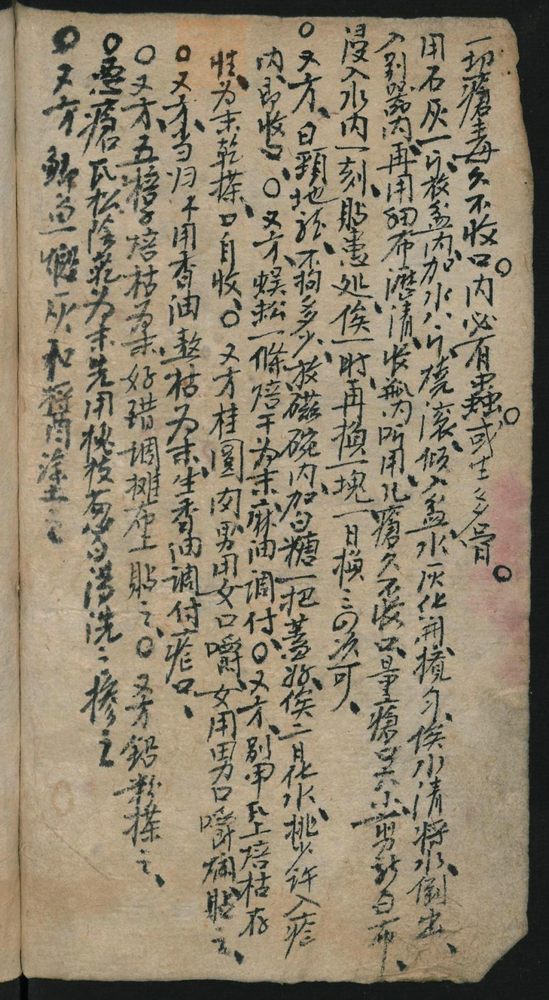 一切瘡毒久不收口。內必有蟲。或生多骨。
用石灰一斤放盆內加水八斤燒滾傾入盆水灰化開攪勻俟水清將水倒出、
入別器內、再用細布瀝清、收瓶內听用、凡瘡久不收口量瘡口大小剪新白布、
浸入水內一刻、貼患处、俟一时、再換一塊、一日換三四次可、
○又方、白頸地龍、不拘多少、放磁碗內、加白糖一把蓋好、俟二日化水、挑少許入瘡
內、即收口、○又方、蜈蚣一條焙干为末、麻油調付、○又方、別甲瓦上焙枯存
性、为末、乾搽、口自收、○又方、桂圓肉、男用女口嚼、女用男口嚼爛貼之、
○又方、当归不用香油熬枯为末、生香油調付瘡口、
○又方、五棓子焙枯为末、好醋調攤布上貼之、○又方、鉛粉搽之、
○惡瘡瓦松陰乾为末、先用槐枝葱白湯洗之摻之
○又方鯽魚燒灰和醬肉塗之